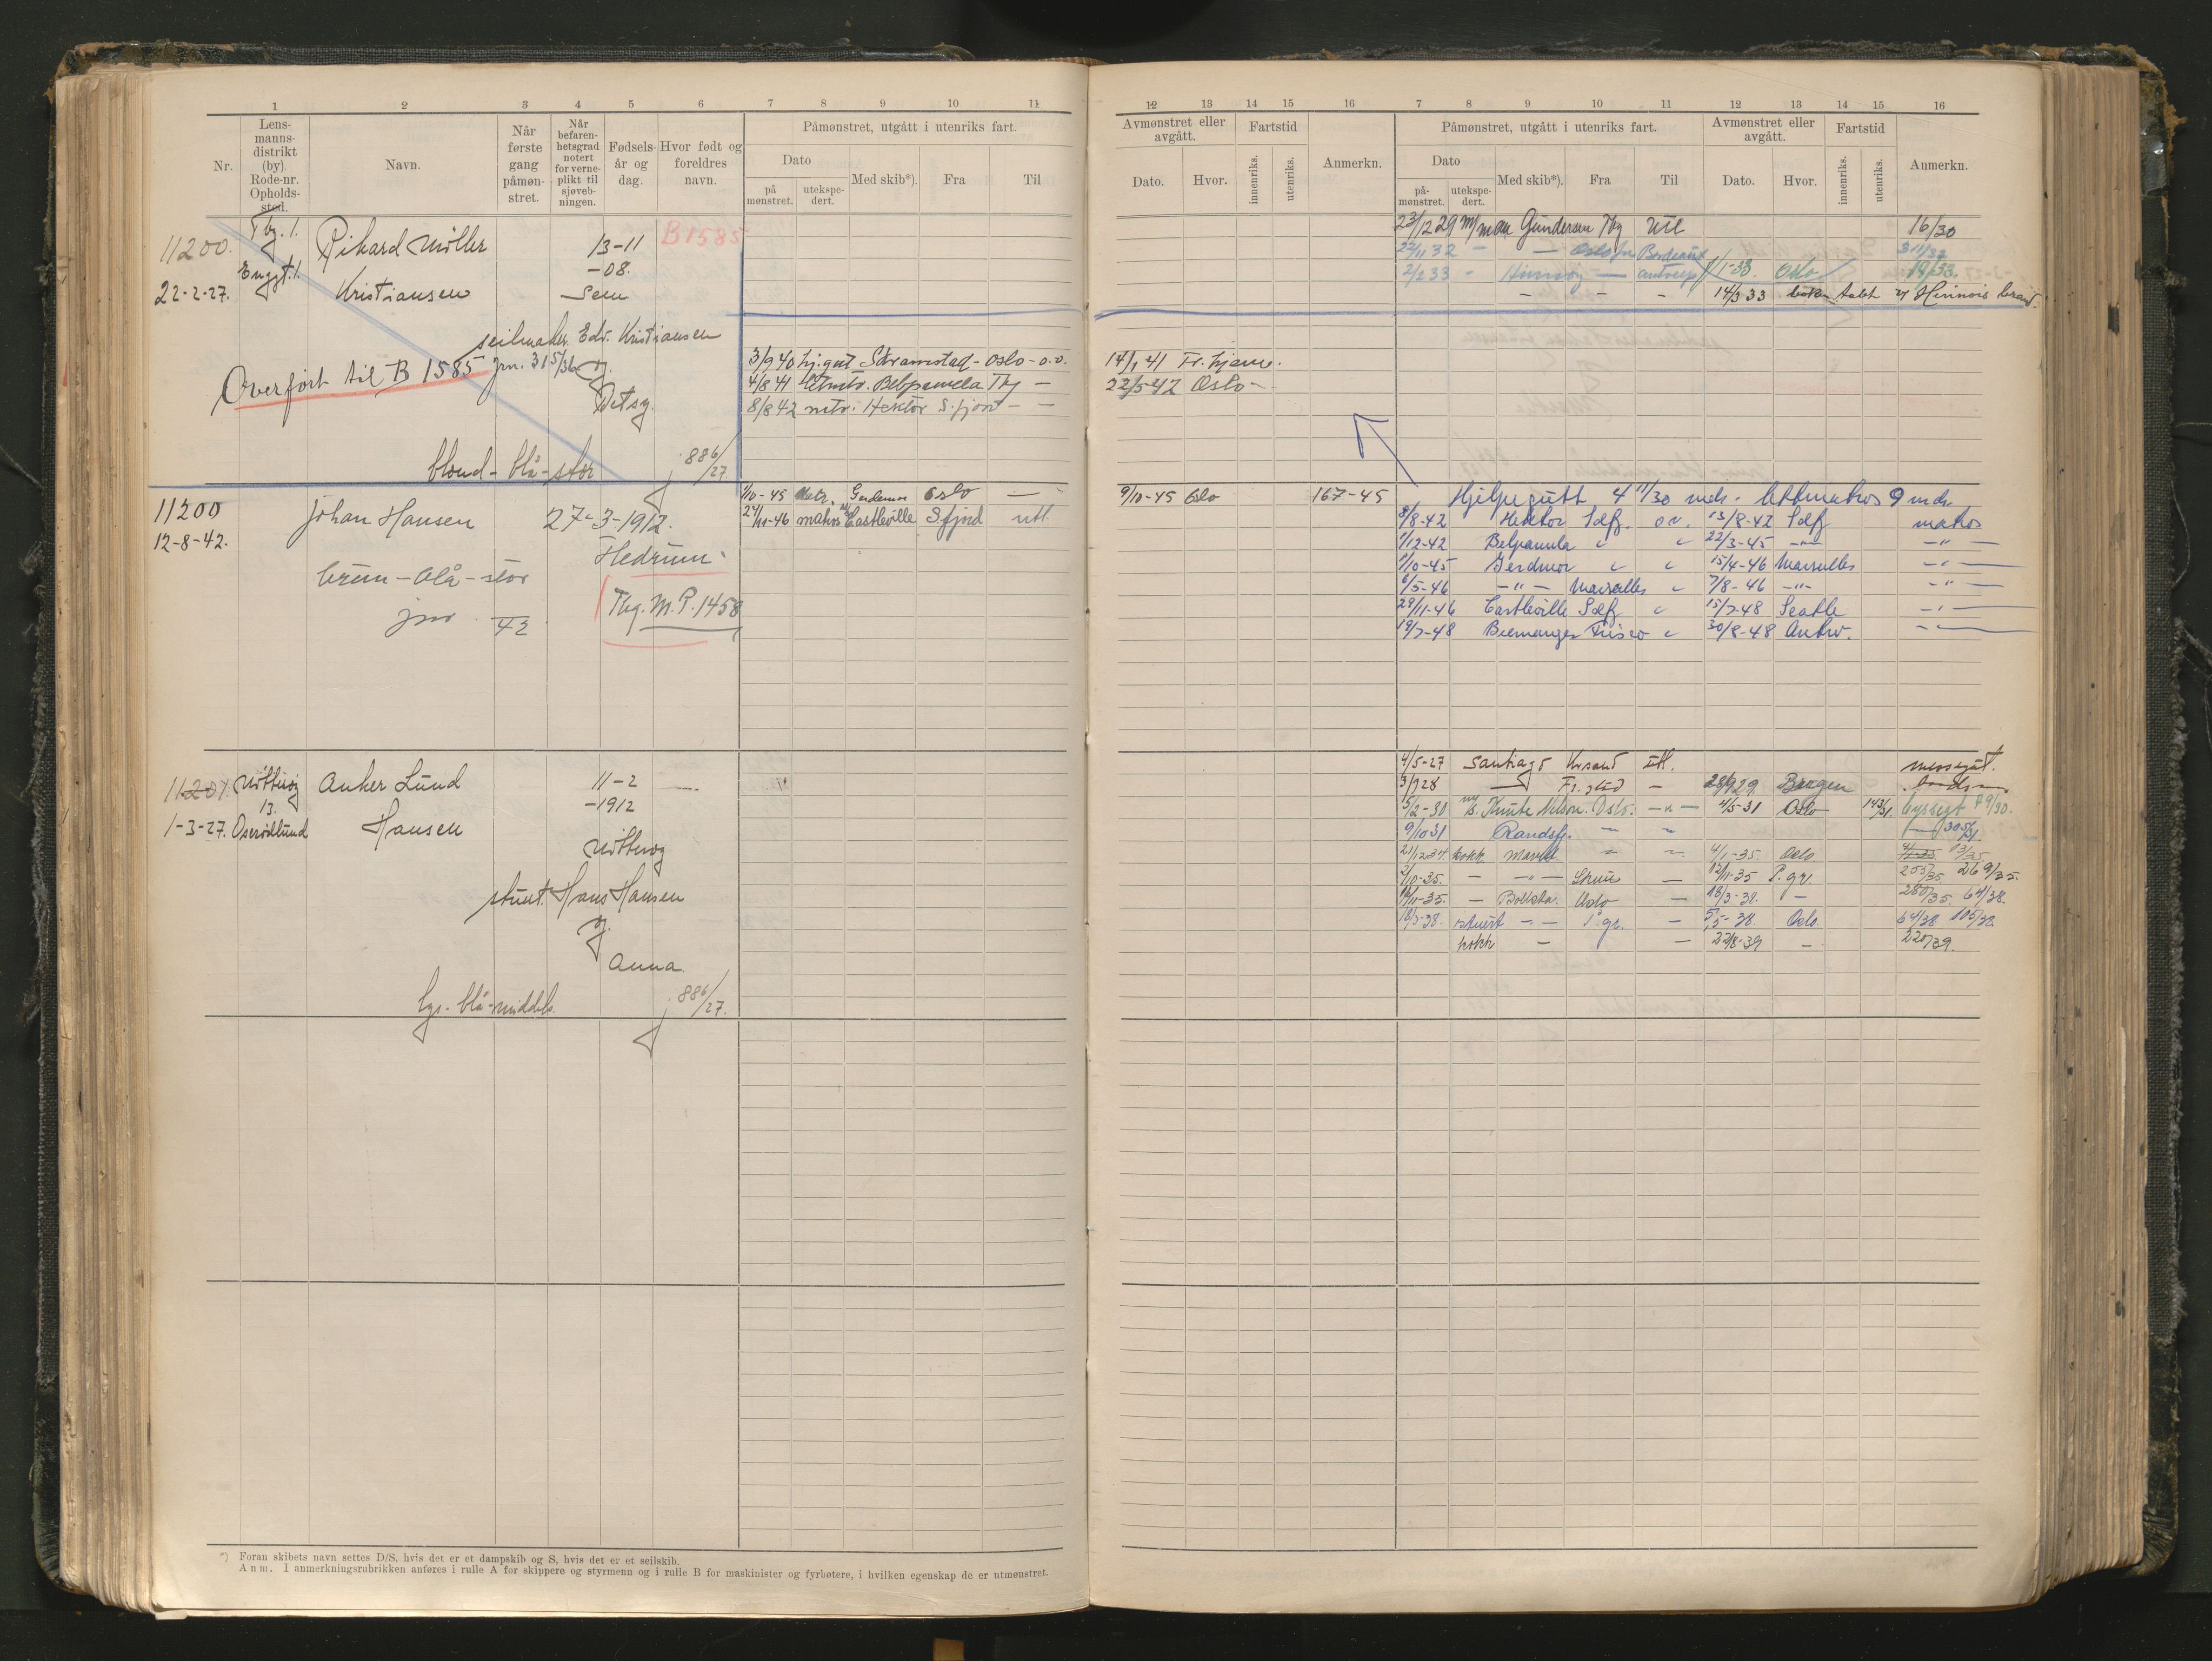 1 2 3 4 5 6 7 8 9 10 11
Nr.
Lensmannsdistrikt (by). Rode-nr. Opholdssted.
Navn.
Når første gang påmønstret.
Når befarenhetsgrad notert for verneplikt til sjøvebningen.
Fødselsår og dag.
Hvor født og foreldres navn.
Påmønstret, utgått i utenriks fart.
Dato
på mønstret.
utekspedert.
Med skib*).
Fra
Til
11200.
Tbg. 1.
Rikard Møller
13-11
B1585
22-2-27.
-08.
Kristiansen
Sem
seilmaker Edv. Kristiansen
Overført til B 1585 Jrn. 315/36 og
Betsy.
blond - blå - stor
886/27
3/9 40 hj.gut Skramstad - Oslo - o.v.
4/8 41 Belpamela Tbg —
8/8 42 mtr. Hektor S.fjord — —
11200
12-8-42.
Johan Hansen
27-3-1912.
Hedrum
brun - blå - stor
Tbg. M.P. 1458
jnr 42
/10-45 Matr. Gerdmor Oslo —
/11-46 matros Castleville S.fjord utl.
11201.
1-3-27.
Nøtterøy
13.
Oserødlund
Anker Lund
Hansen
11-2
-1912
Nøtterøy
stuert Hans Hansen
og
Anna
lys - blå - middels.
886/27.
*) Foran skibets navn settes D/S. hvis det er et dampskib og S, hvis det er et seilskib.
Anm. I anmerkningsrubrikken anføres i rulle A for skippere og styrmenn og i rulle B for maskinister og fyrbøtere, i hvilken egenskap de er utmønstret.
12 13 14 15 16 7 8 9 10 11 12 13 14 15 16
Avmønstret eller avgått.
Dato.
Hvor.
Fartstid
innenriks.
utenriks.
Anmerkn.
Påmønstret, utgått i utenriks fart.
Dato
påmønstret.
utekspedert.
Med skib*).
Fra
Til
Avmønstret eller avgått.
Dato.
Hvor.
Fartstid
innenriks.
utenriks.
Anmerkn.
23/12 29 Gundersen Tbg Utl 16/30
22/11 32 — — Oslo Bordeaux 311/32
2/2 33 - Hinnøy — Antwerp /1-33. Oslo 19/33.
— — — 14/3 33 boken tapt v/ Hinnois brand.
14/1 41 Fr. hjem.
22/5 42 Oslo
9/10-45 Oslo 167-45
Hjelpegutt 4 11/30 mdr. lettmatros 9 mdr.
8/8-42 Hektor Sdfj. o.v. 13/8-42 Sdfj matros
/12-42 Belpamela " " 22/3-45 -"- -"-
/10-45 Gerdmor " " 15/4-46 Marseilles -"-
6/5-46 -"- Marseilles " 7/8-46 -"- -"-
28/11-46 Castleville Sdfj " 15/7-48 Seatle -"-
19/7-48 Bremanger Frisco " 30/8-48 Antw. -"-
4/5-27 Santiago Krsand utl. messegut.
3/9 28 — Fr.stad — 28/9 29 Bergen
5/2-30 Knute Nelson. Oslo. -"- 4/5-31 Oslo 143/31.
9/10 31 Randsfj. " " 305/31
21/12 34. kokk " " 4/1-35. Oslo 13/35
2/10-35. — -"- — 12/11-35 P.gr. 255/35 269/35.
14/11-35. — Oslo — 18/3-38. — 280/35. 64/38.
18/3-38. stuert -"- P.gr. — 5/5-38 Oslo. 64/38 105/38
kokk — — 23/8-39 — 220/39.